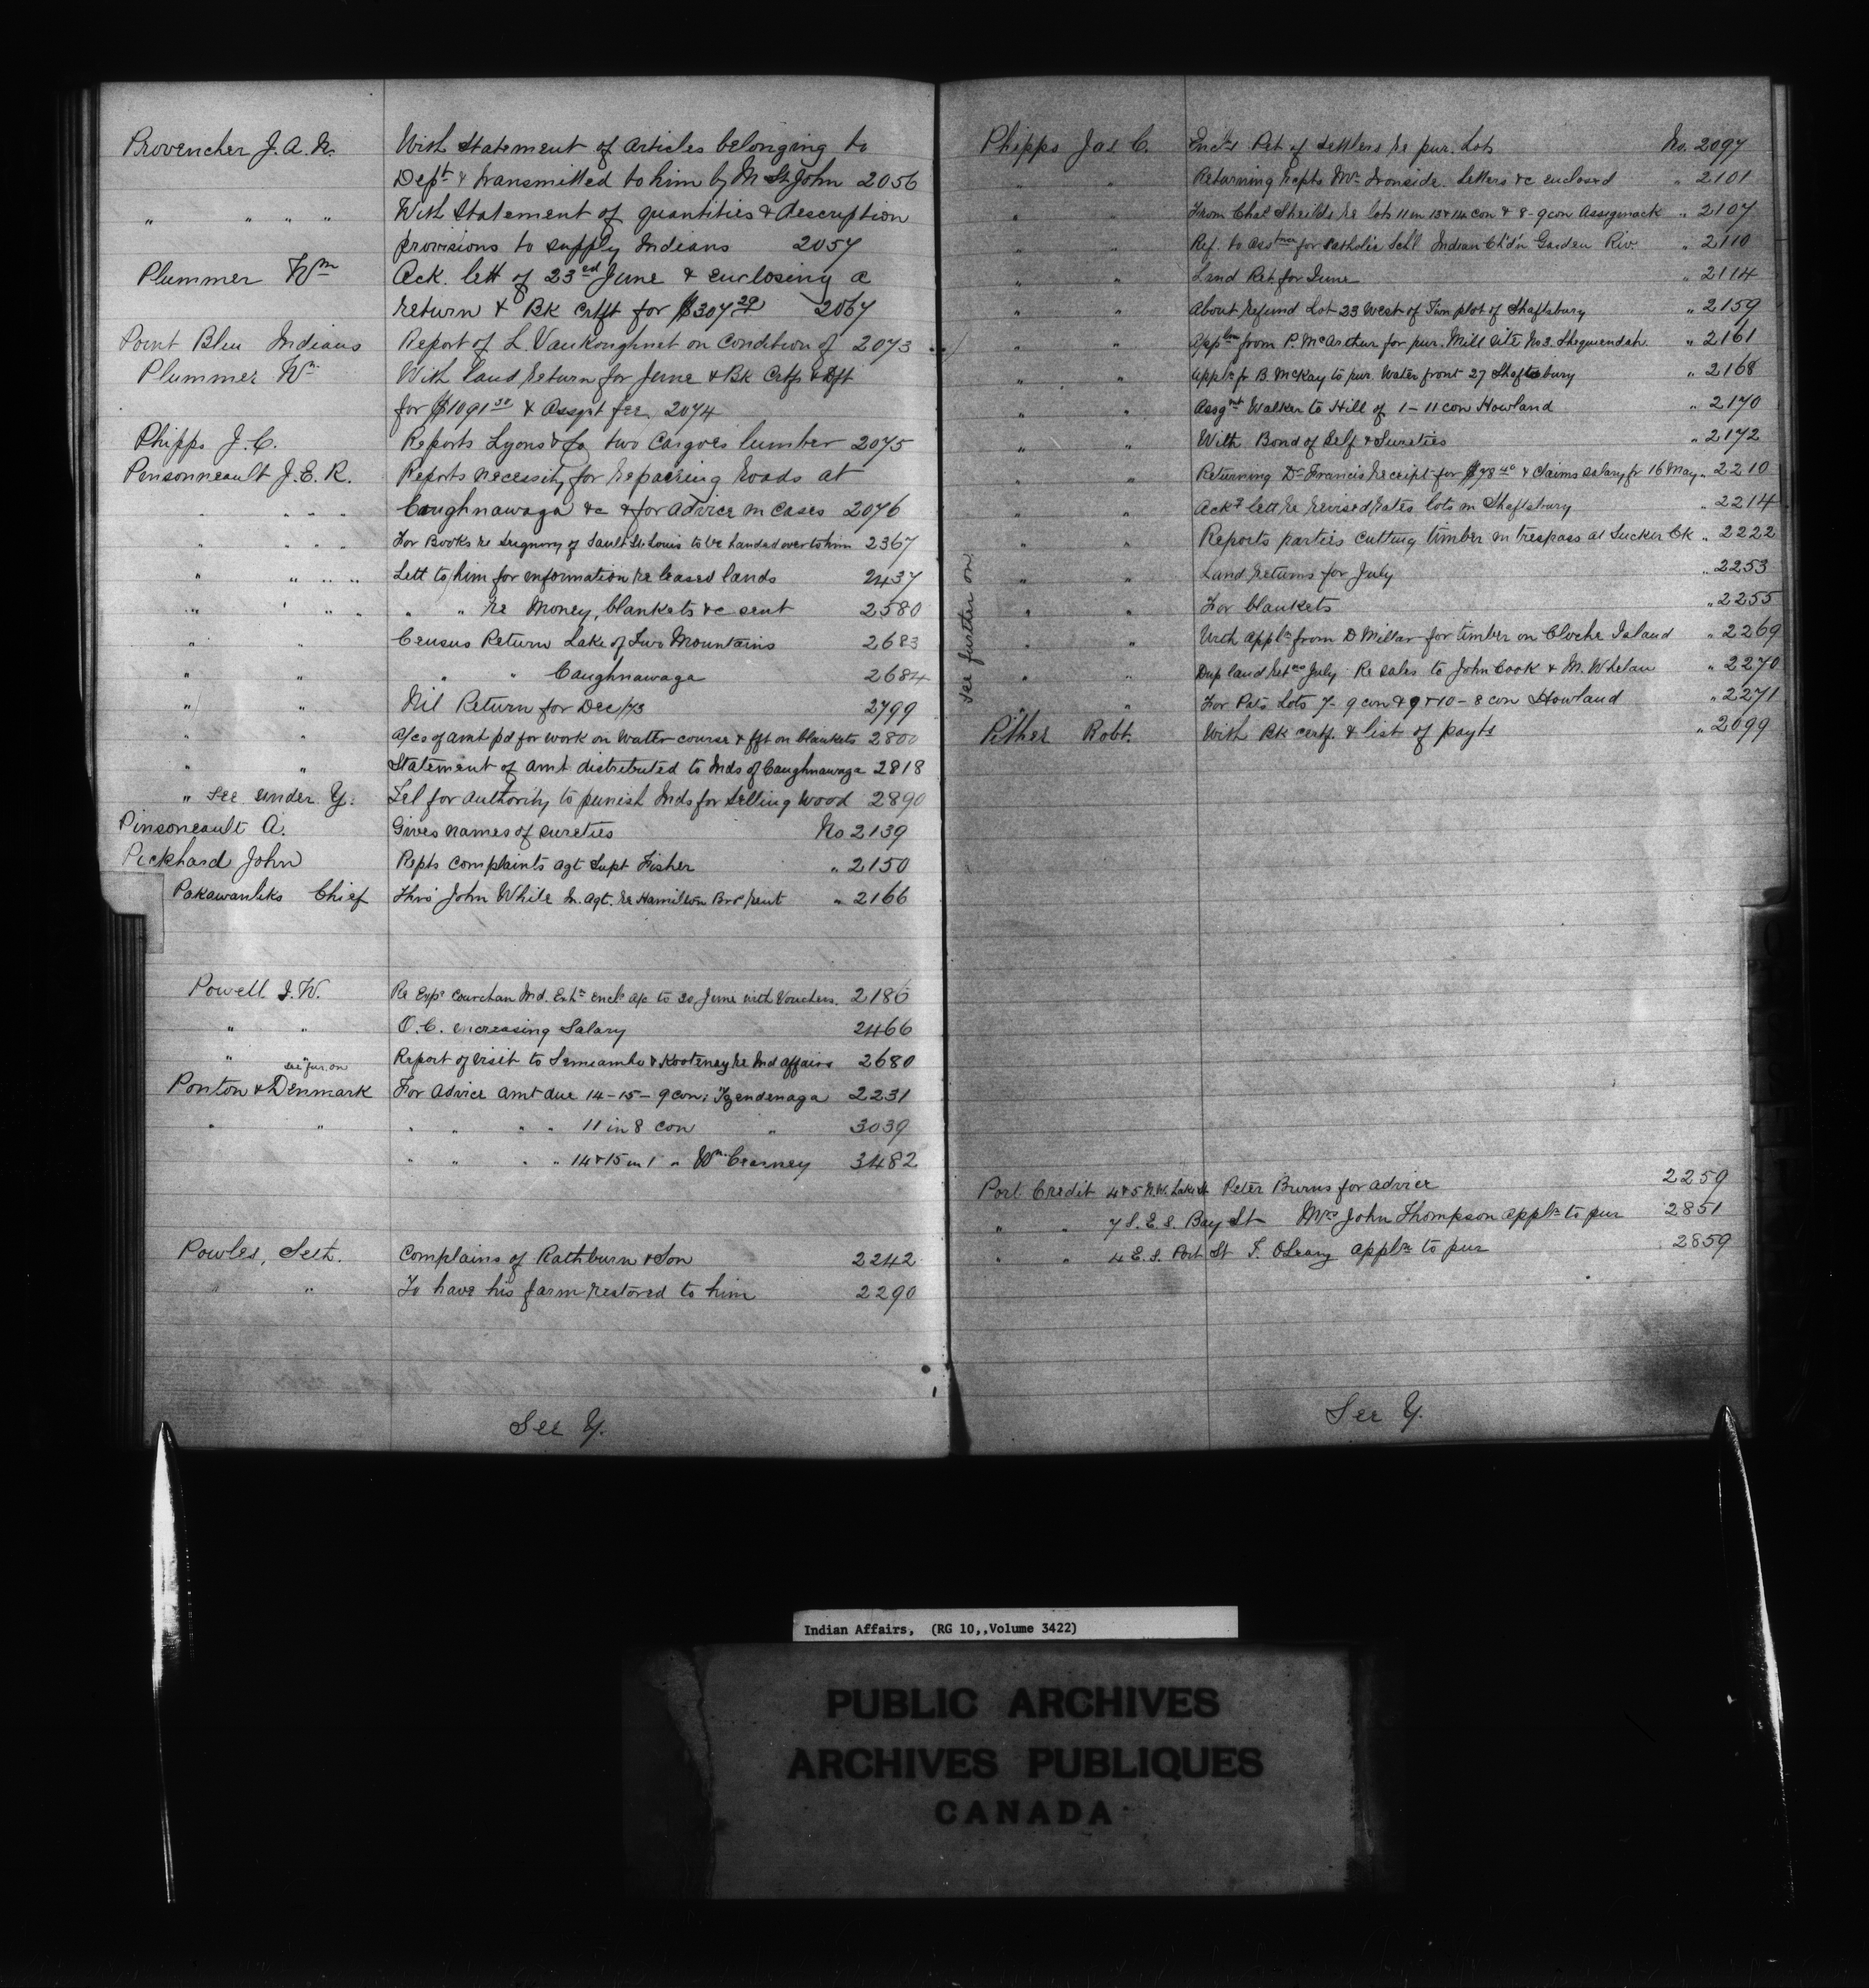 Provencher J. A. N. With Statement of Articles belonging to
Dept & transmitted to him by M St John 2056
" " " " With Statement of quantities & description
provisions to supply Indians 2057
Plummer Wm Ack. lett of 23rd June & enclosing a
return & Bk Crtft for $307 29 2067
Point Bleu Indians Report of L. VanKoughnet on Condition of 2073
Plummer Wm With land return for June & Bk Crtfs & Dft
for $1091 30 & Assgnt fee 2074
Phipps J. C. Reports Lyons & Co two Cargoes lumber 2075
Pensonneault J. E. R. Reports necessity for repairing roads at
Caughnawaga &c & for advice in cases 2076
" " " " For Books re Seignory of Sault St Louis to be handed over to him 2367
" " " " Lett to him for information re leased lands 2437
" " " " " " re Money, blankets &c sent 2580
" " Census Return Lake of Two Mountains 2683
" " " " Caughnawaga 2684
" " Nil Return for Dec/73 2799
" " a/cs of amt pd for work on Water course & fft on blankets 2800
" " Statement of amt distributed to Inds of Caughnawaga 2818
" See under Y: Tel for authority to punish Inds for selling wood 2890
Pinsoneault A. Gives names of sureties No 2139
Pickhard John Repts complaints agt Supt Fisher " 2150
Pakawanliks Chief Thro John White In. Agt. re Hamilton Bros rent " 2166
Powell I. W. Re Exps Cowichan Ind. Exhn encls a/c to 30 June with Vouchers. 2186
" " O. C. increasing Salary 2466
" " Report of visit to Semiamho & Kootenay re Ind affairs 2680
see fur. on
Ponton & Denmark For advice amt due 14-15-9 con: Tyendenaga 2231
" " " " " " 11 in 8 con " 3039
" " " " 14 & 15 in 1 " Wm Cearney 3482
Powles, Seth. Complains of Rathburn & Son 2242
" " To have his farm restored to him 2290
See Y.
Phipps Jas C. Encls Pet. of settlers re pur. Lots No. 2097
" " Returning recpts Mrs Ironside. Letters &c enclosed " 2101
" " From Chas Sheilds re lots 11 in 13 & 14 con & 8-9 con Assiginack " 2107
" " Ref. to asstnce for Catholic Schl Indian Ch'd'n Garden Riv. " 2110
" " Land Ret. for June " 2114
" " About refund Lot 23 West of Twn plot of Shaftsbury " 2159
" " Appln from P. McArthur for pur. Mill site No 3. Sheguiendah. " 2161
" " Appln fr B. McKay to pur. Water front 27 Shaftsbury " 2168
" " Assgnt Walker to Hill of 1-11 con Howland " 2170
" " With Bond of Self & Sureties " 2172
" " Returning Dr Francis receipt for $78 40 & claims salary fr 16 May " 2210
" " Ackg lett re revised rates lots in Shaftsbury " 2214
" " Reports parties cutting timber in trespass at Sucker Ck " 2222
" " Land returns for July " 2253
" " For blankets " 2255
" " With appln from D Millar for timber on Cloche Island " 2269
" " Dup land Retns July Re sales to John Cook & M. Whelan " 2270
" " For Pats Lots 7-9 con & 9 & 10-8 con Howland " 2271
see further on
Pither Robt. With Bk certf. & list of payts " 2099
Port Credit 4 & 5 N.W. Lake St Peter Burns for advice 2259
" " 7 S. E. S. Bay St Mrs John Thompson appln to pur 2851
" " 4 E. S. Port St T. O'Leary appln to pur 2859
See Y.
Indian Affairs, (RG 10,,Volume 3422)
PUBLIC ARCHIVES
ARCHIVES PUBLIQUES
CANADA